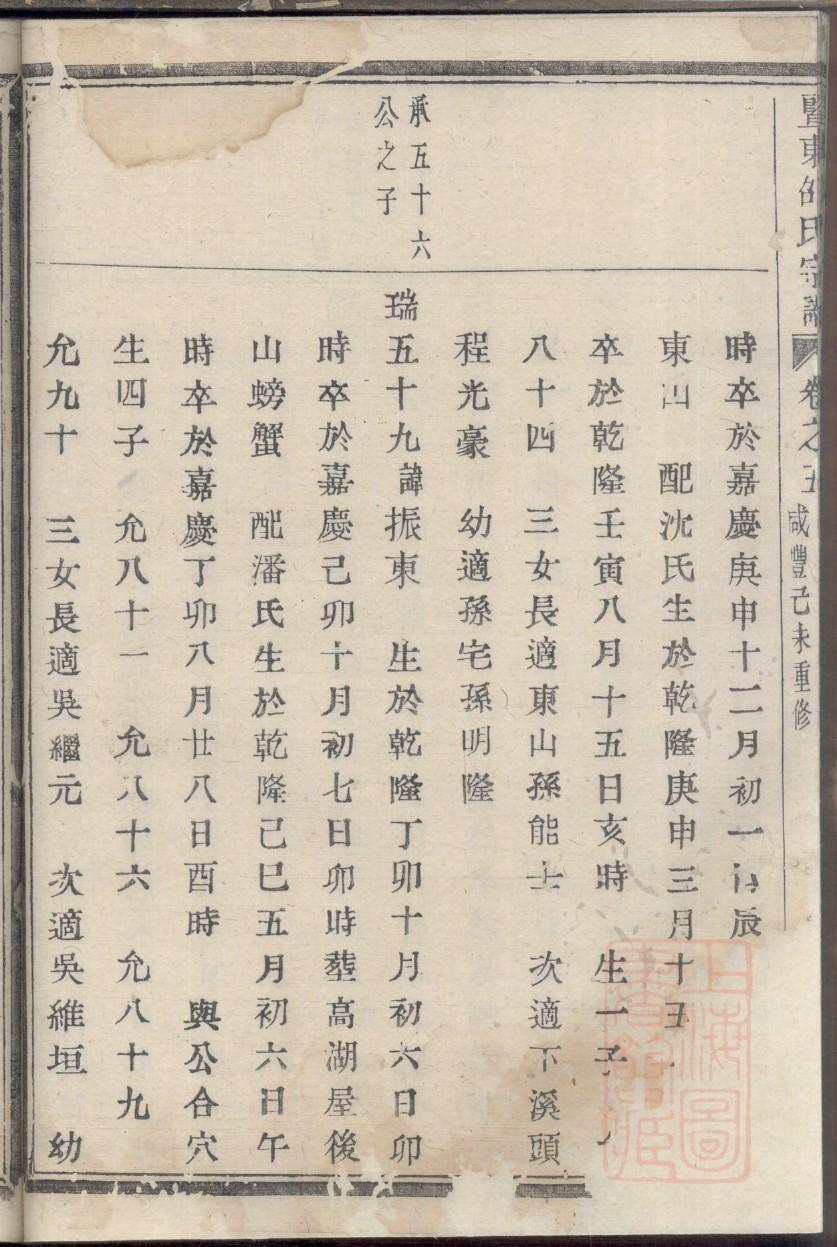 暨東邵氏宗譜 卷之五 咸豐己未重修
時卒於嘉慶庚申十二月初一日辰
東山 配沈氏生於乾隆庚申三月十五
卒於乾隆壬寅八月十五日亥時 生一子
八十四 三女長適東山孫能士 次適下溪頭
程光豪 幼適孫宅孫明隆
承五十六
公之子
瑞五十九諱振東 生於乾隆丁卯十月初六日卯
時卒於嘉慶己卯十月初七日卯時塟高湖屋後
山螃蟹 配潘氏生於乾隆己巳五月初六日午
時卒於嘉慶丁卯八月廿八日酉時 與公合穴
生四子 允八十一 允八十六 允八十九
允九十 三女長適吳繼元 次適吳維垣 幼
上海圖書館藏